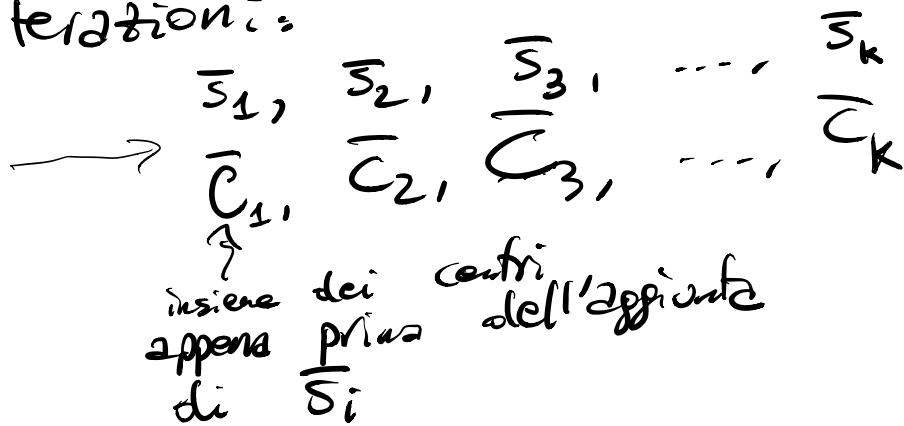 terazioni:
s̅₁, s̅₂, s̅₃, ...., s̅ₖ
→ C̅₁, C̅₂, C̅₃, ...., C̅ₖ
insieme dei centri
appena prima dell'aggiunta
di s̅ᵢ